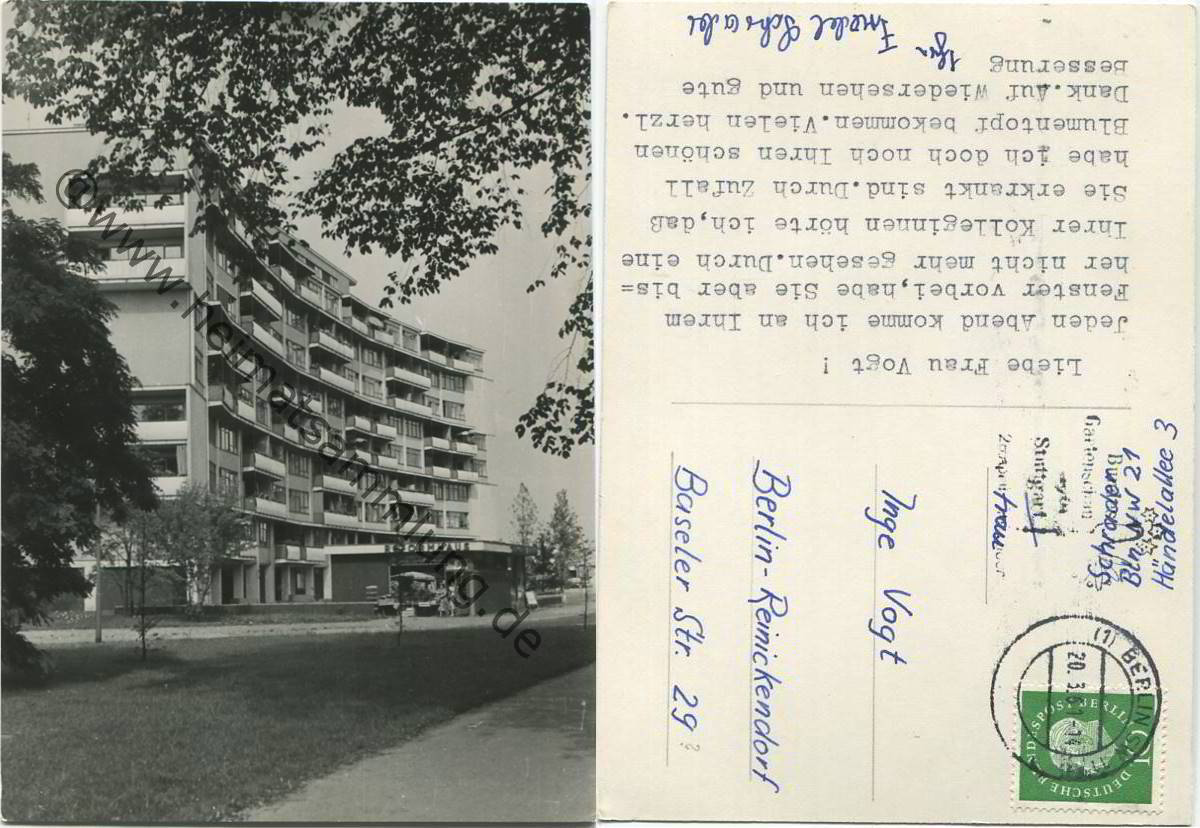 ©www.heimatsammlung.de
Liebe Frau Vogt !
Jeden Abend komme ich an Ihrem
Fenster vorbei,habe Sie aber bis=
her nicht mehr gesehen.Durch eine
Ihrer Kolleginnen hörte ich,daß
Sie erkrankt sind.Durch Zufall
habe ich doch noch Ihren schönen
Blumentopf bekommen.Vielen herzl.
Dank.Auf Wiedersehen und gute
Besserung
Ihr
Friedel Schrader
Schrader
Bln NW 21
Händelallee 3
Stuttgart
Gartenschau
(1) BERLIN
20.3.61-14
DEUTSCHE BUNDESPOST BERLIN
10
Inge Vogt
Berlin-Reinickendorf
Baseler Str. 29?